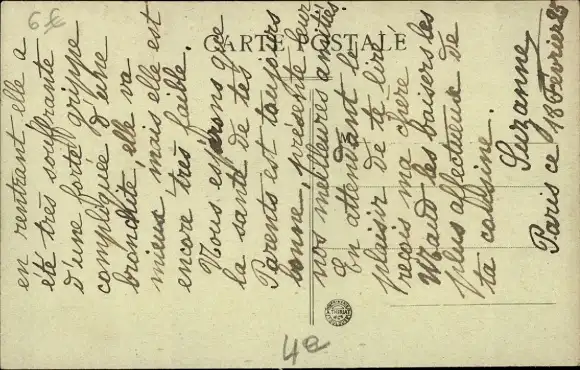 6€
CARTE POSTALE
en rentrant, elle a
été très souffrante
d'une forte grippe
compliquée d'une
bronchite, elle va
mieux mais elle est
encore très faible.
Nous espérons que
la santé de tes
Parents est toujours
bonne, présente leur
nos meilleures amitiés.
En attendant le
plaisir de te lire
reçois ma chère
les baisers les
plus affectueux de
ta cousine.
Suzanne
Paris ce 18 Fevrier 25
4e